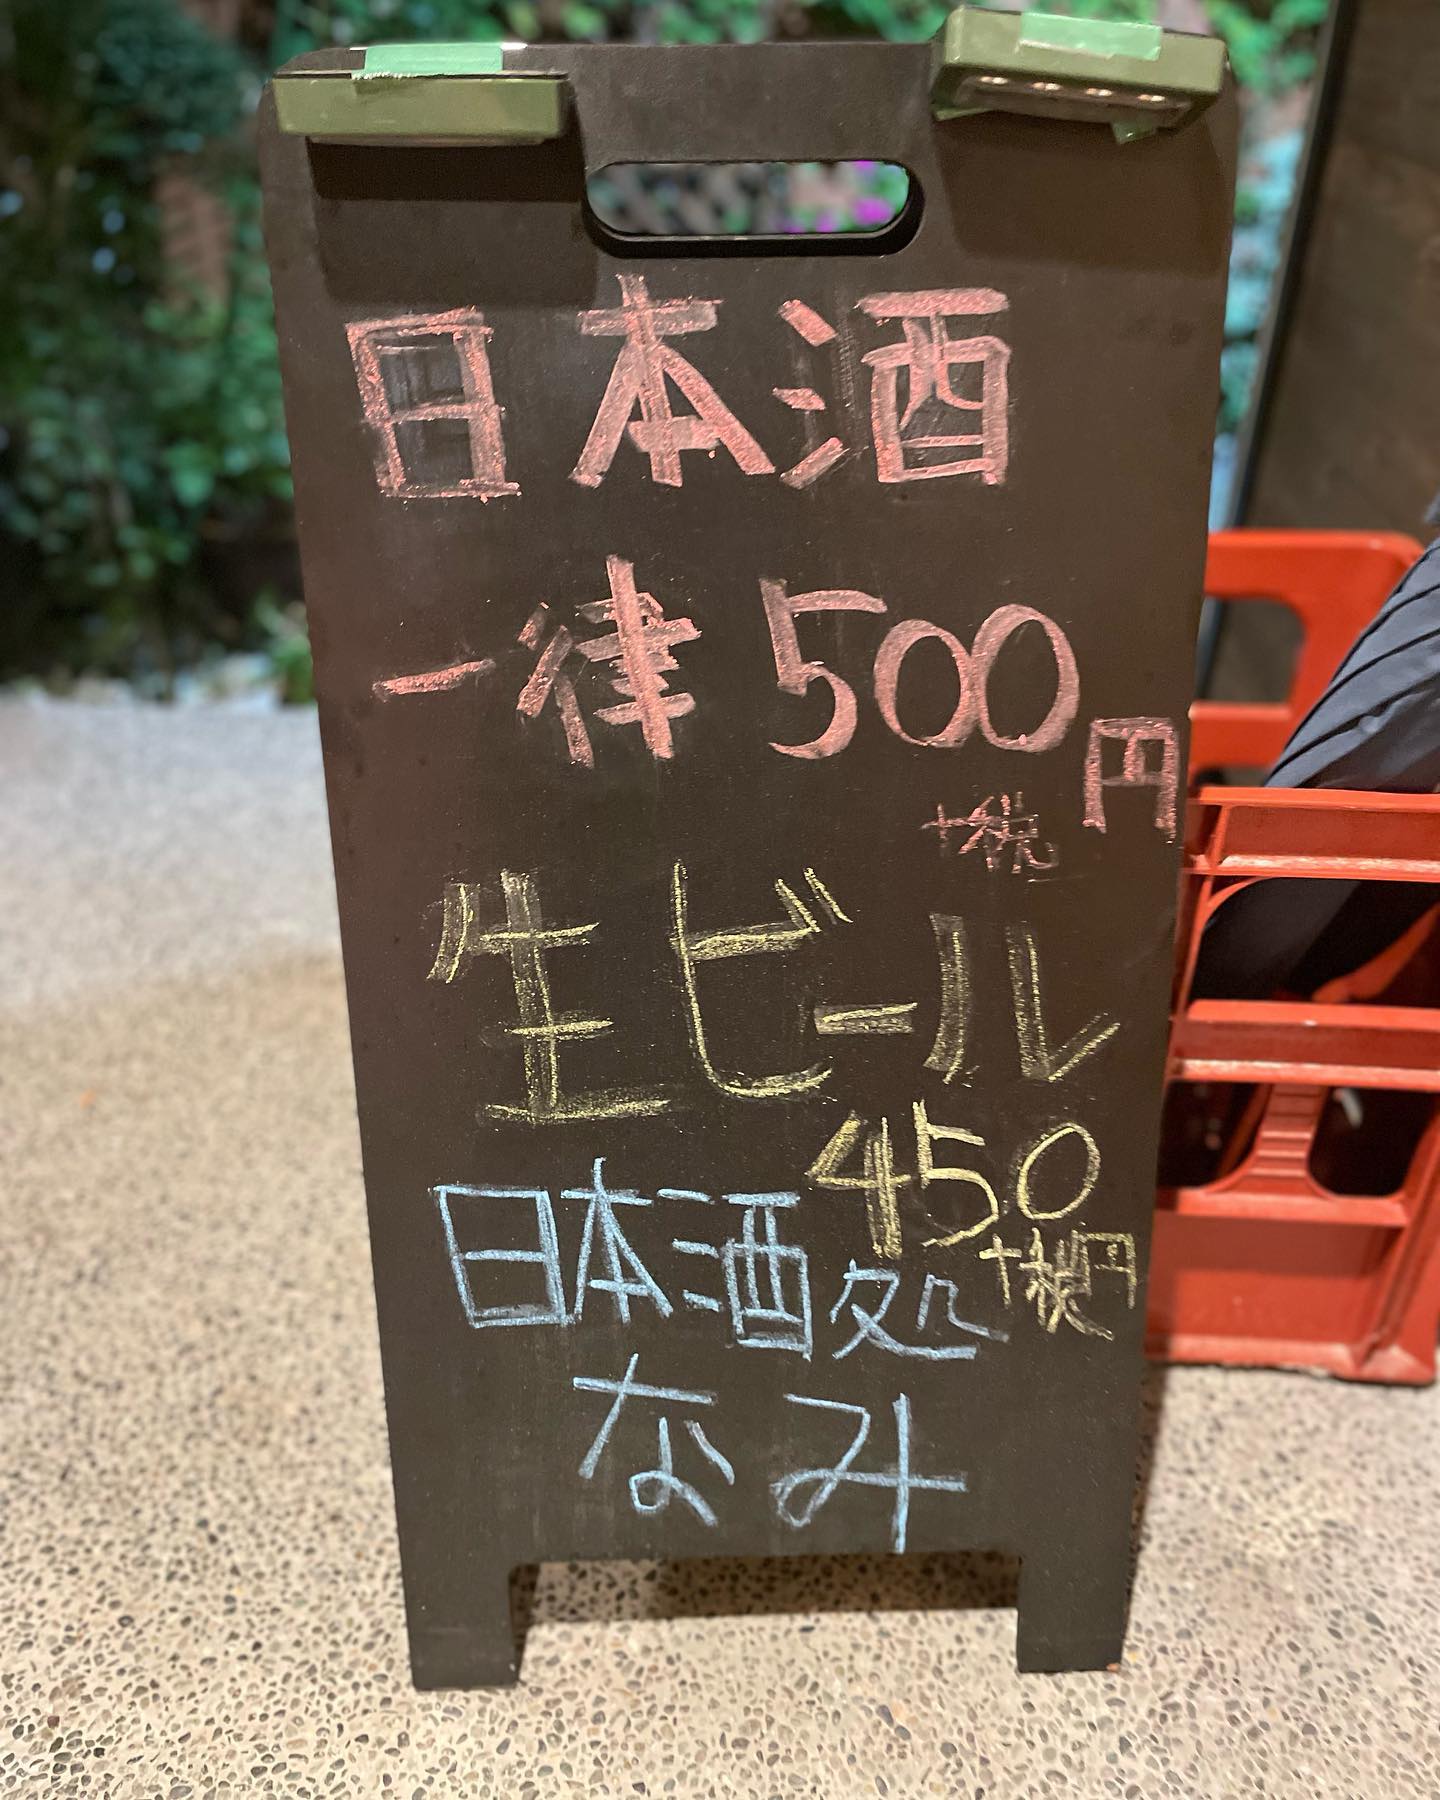 日本酒
一律500円
+税
生ビール
450円
+税
日本酒処
なみ